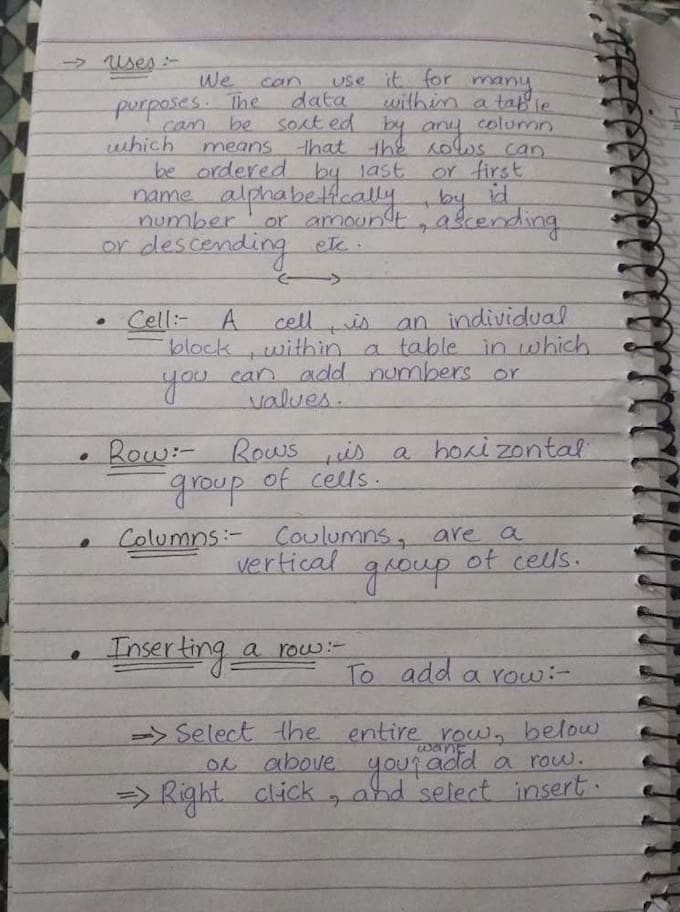 → Uses:-
We can use it for many
purposes. The data within a table
can be sorted by any column
which means that the rows can
be ordered by last or first
name alphabetically, by id
number or amount, ascending
or descending etc.
• Cell:- A cell, is an individual
block, within a table in which
you can add numbers or
values.
• Row:- Rows, is a horizontal
group of cells.
• Columns:- Coulumns, are a
vertical group of cells.
• Inserting a row:-
To add a row:-
⇒ Select the entire row, below
or above you want add a row.
⇒ Right click, and select insert.